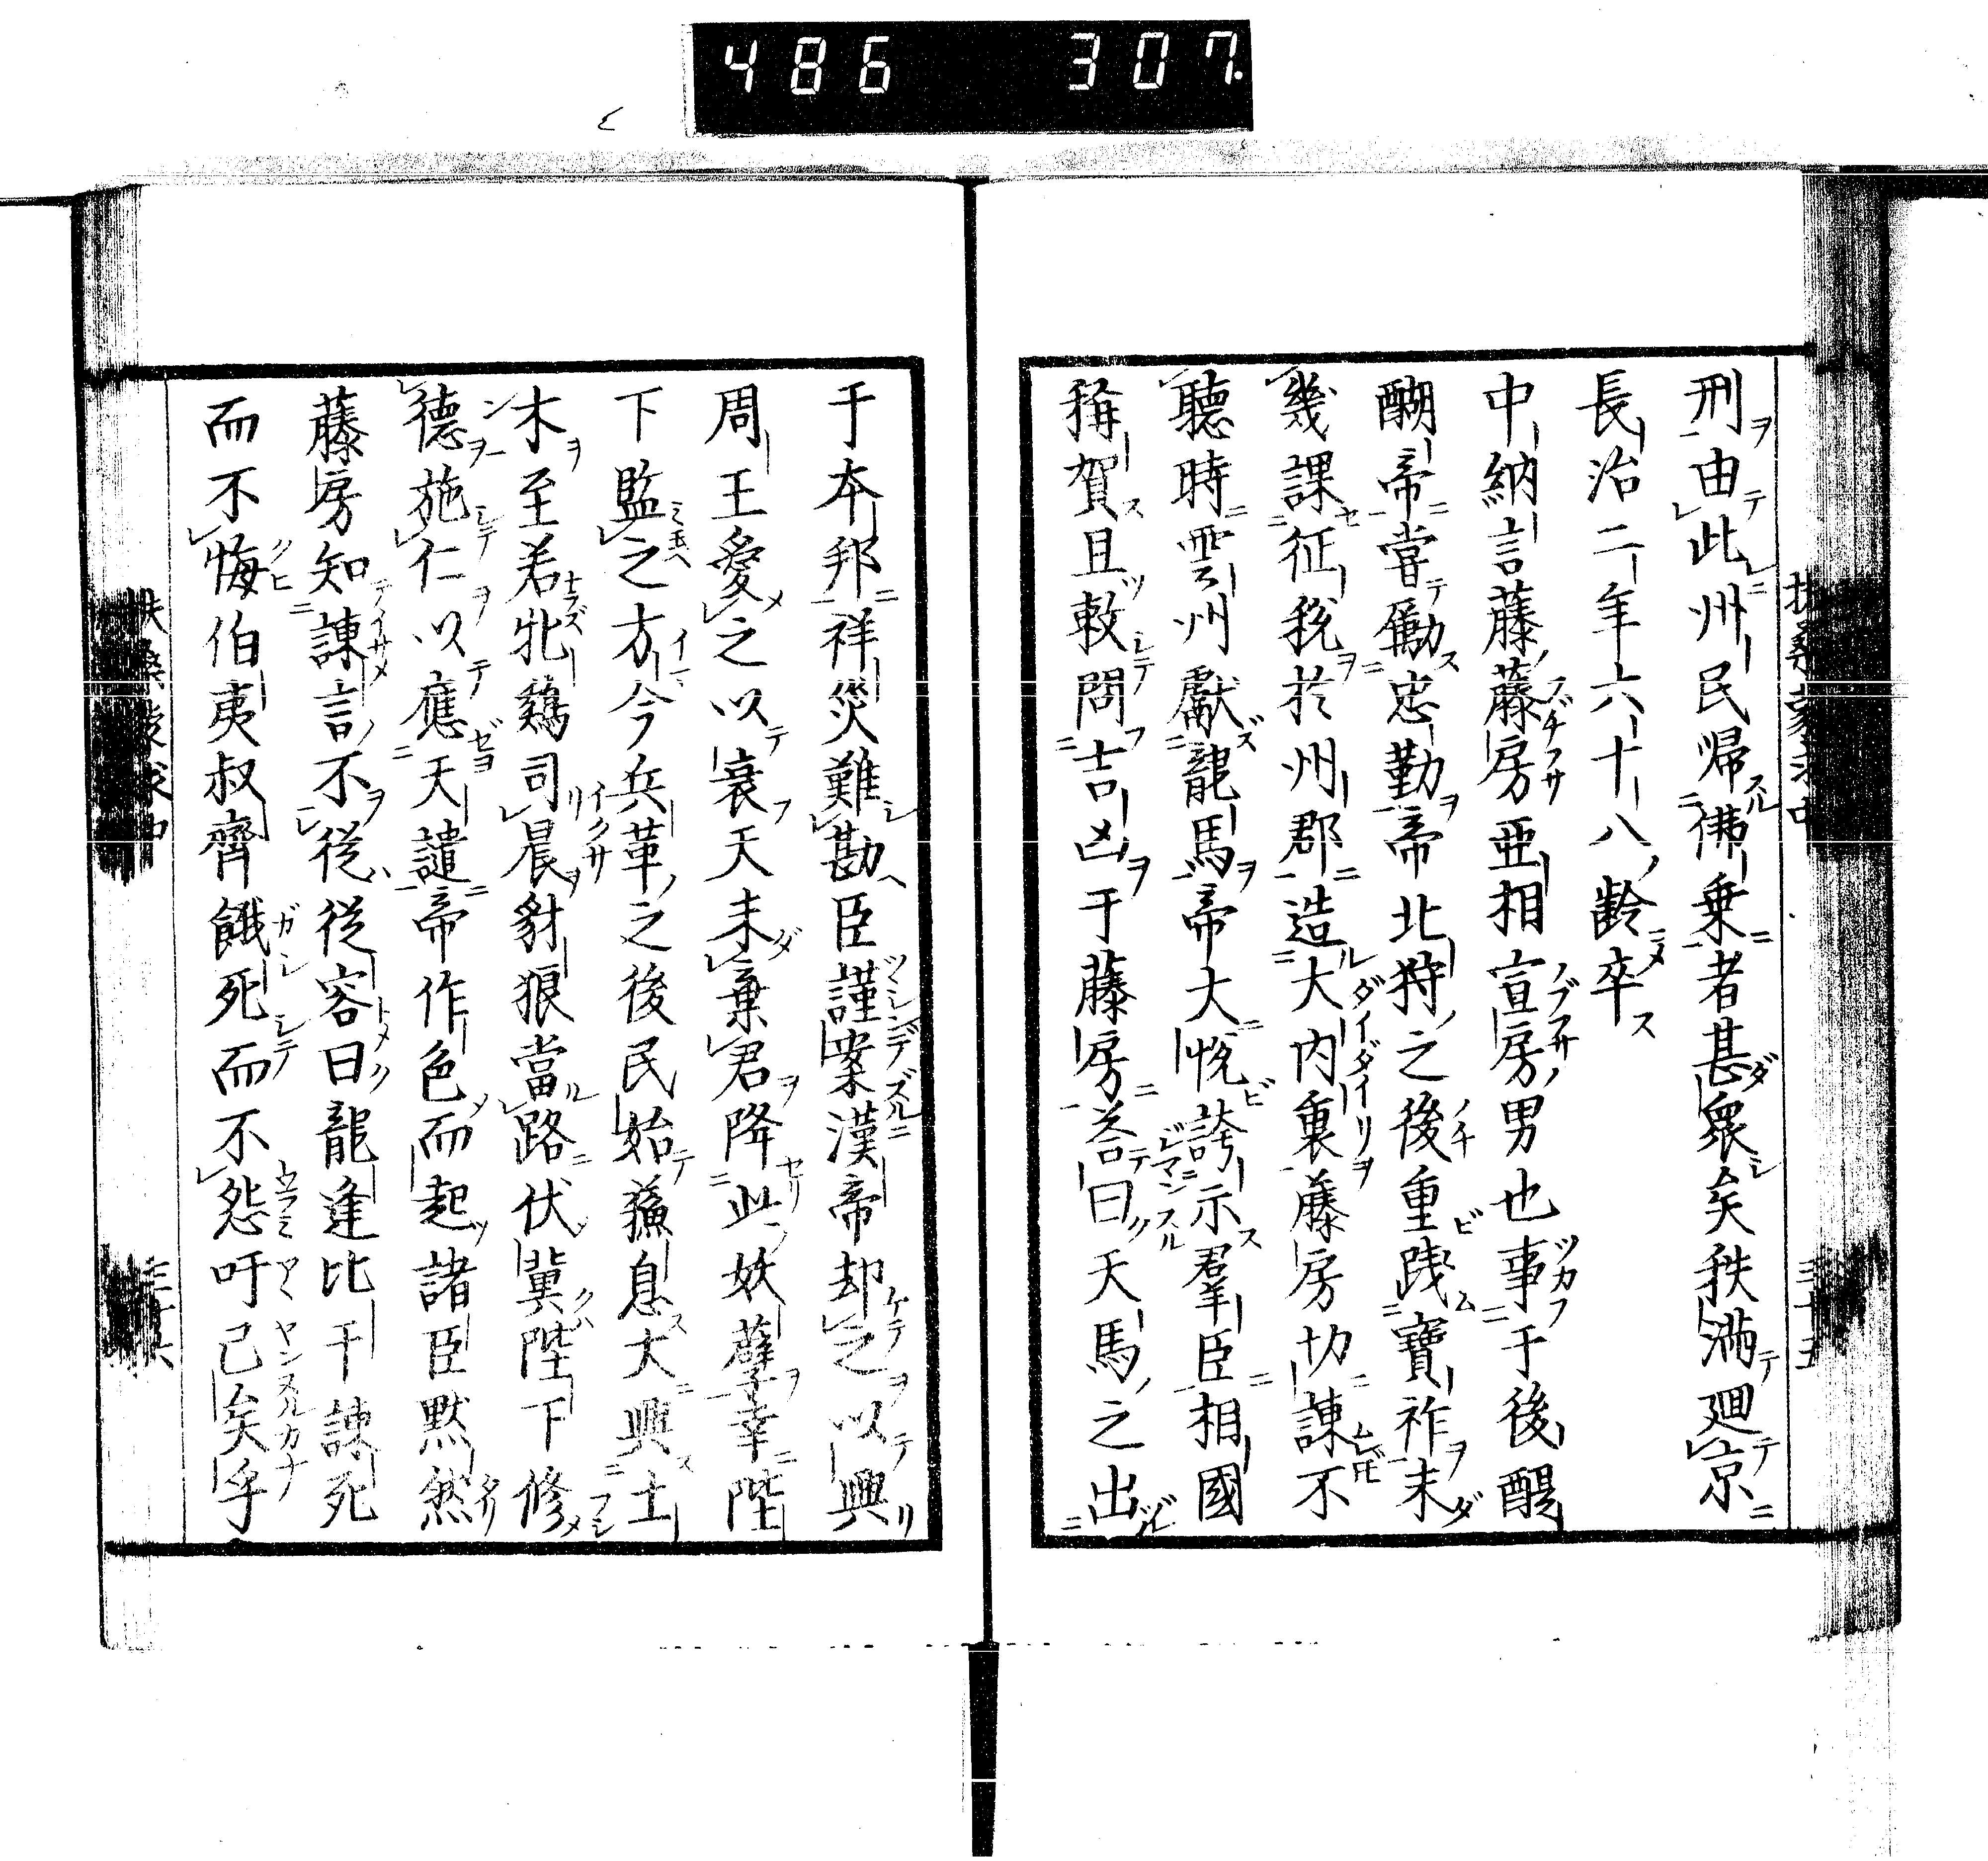 486 307.
刑由此州民帰佛乗者甚衆矣秩滿廻京
長治二年六十八齡卒
中納言藤藤房亜相宣房男也事于後醍
醐帝嘗勵忠勤帝北狩之後重踐寶祚未
幾課征税於州郡造大内裏藤房切諫不
聽時雲州獻龍馬帝大悦誇示羣臣相國
稱賀且敕問吉凶于藤房荅曰天馬之出
于本邦祥災難勘臣謹案漢帝却之以興
周王愛之以衰天未棄君降此妖孽幸陛
下監之方今兵革之後民始蘓息大興土
木至若牝鷄司晨豺狼當路伏冀陛下修
德施仁以應天譴帝作色而起諸臣黙然
藤房知諫言不從從容曰龍逢比干諫死
而不悔伯夷叔齊餓死而不怨吁已矣乎